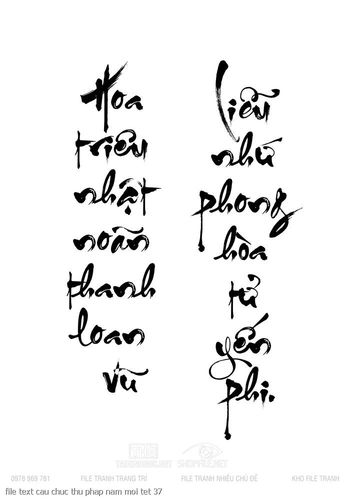 Hoa
triêu
nhật
noãn
thanh
loan
vũ
Liễu
nhứ
phong
hòa
tử
yến
phi.
SHOPFILE.NET
0978 969 761 FILE TRANH TRANG TRÍ FILE TRANH NHIỀU CHỦ ĐỀ KHO FILE TRANH
file text cau chuc thu phap nam moi tet 37